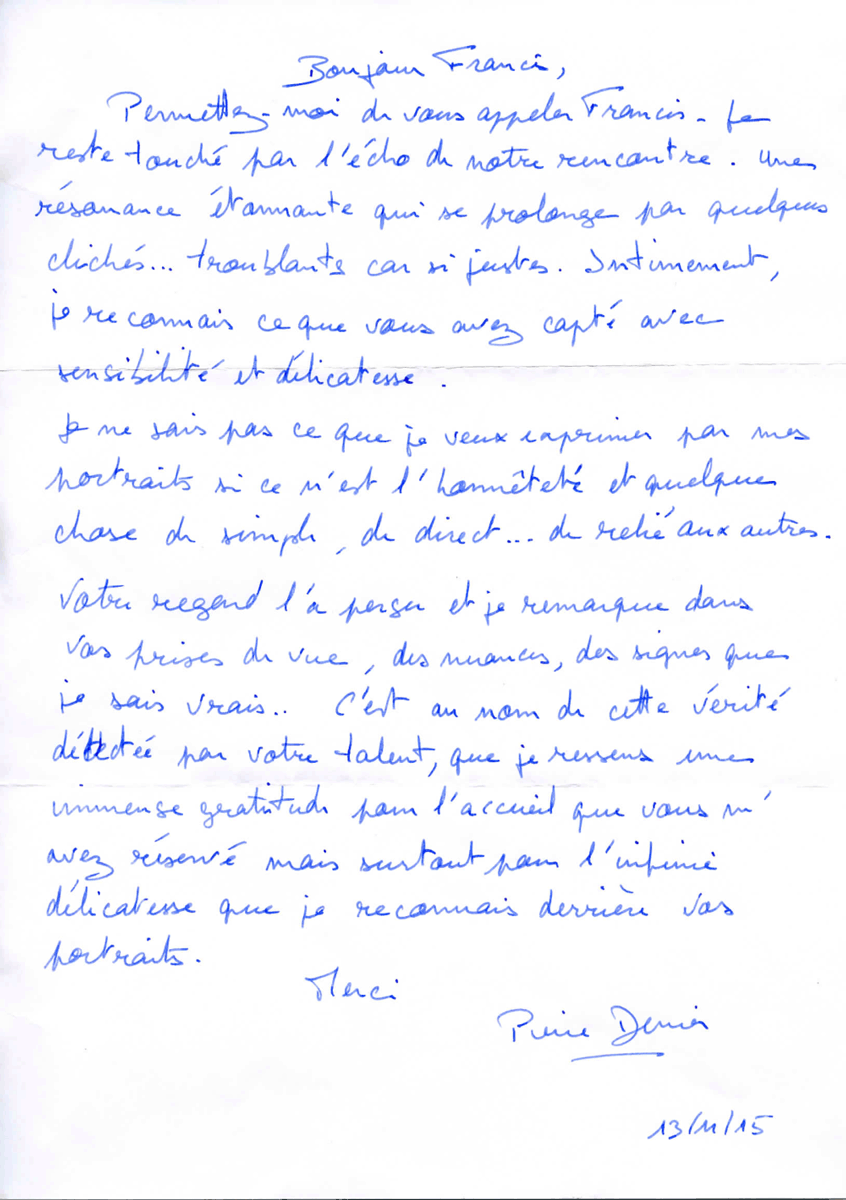 Bonjour Francis,
Permettez-moi de vous appeler Francis. Je
reste touché par l'écho de notre rencontre. Une
résonance étonnante qui se prolonge par quelques
clichés... troublants car si justes. Intimement,
je reconnais ce que vous avez capté avec
sensibilité et délicatesse.
Je ne sais pas ce que je veux exprimer par mes
portraits si ce n'est l'honnêteté et quelque
chose de simple, de direct... de relié aux autres.
Votre regard l'a perçu et je remarque dans
vos prises de vue, des nuances, des signes que
je sais vrais.. C'est au nom de cette vérité
détectée par votre talent, que je ressens une
immense gratitude pour l'accueil que vous m'
avez réservé mais surtout pour l'infinie
délicatesse que je reconnais derrière vos
portraits.
Merci
Pierre
13/11/15